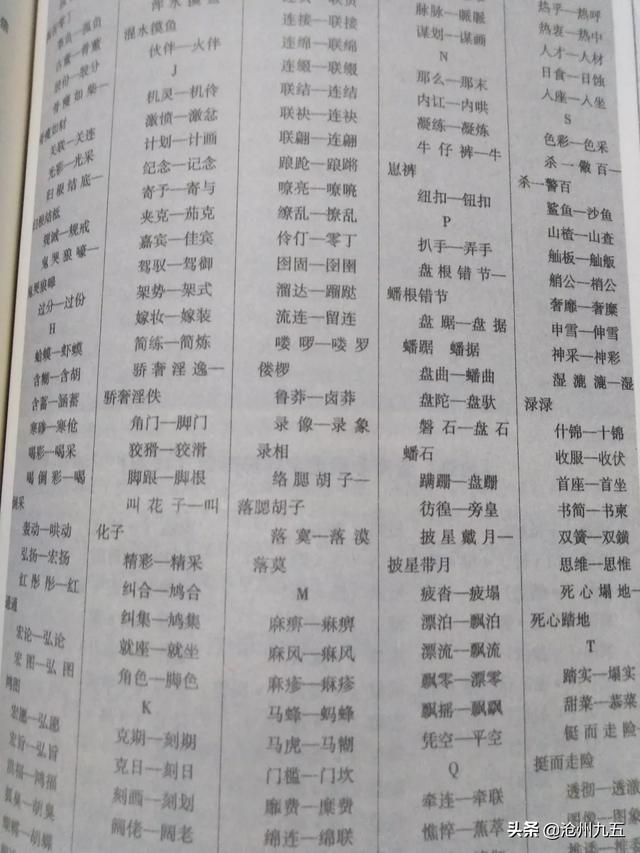 关联—关连
光彩—光采
归根结底—
归根结柢
规诫—规戒
鬼哭狼嚎—
鬼哭狼嗥
过分—过份
H
蛤蟆—虾蟆
含糊—含胡
含蓄—涵蓄
寒碜—寒伧
喝彩—喝采
喝倒彩—喝
倒采
轰动—哄动
弘扬—宏扬
红彤彤—红
通通
宏论—弘论
宏图—弘图
鸿图
宏愿—弘愿
宏旨—弘旨
洪福—鸿福
狐臭—胡臭
蝴蝶—胡蝶
混水摸鱼
伙伴—火伴
J
机灵—机伶
激愤—激忿
计划—计画
纪念—记念
寄予—寄与
夹克—茄克
嘉宾—佳宾
驾驭—驾御
架势—架式
嫁妆—嫁装
简练—简炼
骄奢淫逸—
骄奢淫佚
角门—脚门
狡猾—狡滑
脚跟—脚根
叫花子—叫
化子
精彩—精采
纠合—鸠合
纠集—鸠集
就座—就坐
角色—脚色
K
克期—刻期
克日—刻日
刻画—刻划
阔佬—阔老
连接—联接
连绵—联绵
连缀—联缀
联结—连结
联袂—连袂
联翩—连翩
踉跄—踉蹡
嘹亮—嘹喨
缭乱—撩乱
伶仃—零丁
囹圄—囹圉
溜达—蹓跶
流连—留连
喽啰—喽罗
偻㑩
鲁莽—卤莽
录像—录象
录相
络腮胡子—
落腮胡子
落寞—落漠
落莫
M
麻痹—痳痹
麻风—痳风
麻疹—痳疹
马蜂—蚂蜂
马虎—马糊
门槛—门坎
靡费—糜费
绵连—绵联
脉脉—眽眽
谋划—谋画
N
那么—那末
内讧—内哄
凝练—凝炼
牛仔裤—牛
崽裤
纽扣—钮扣
P
扒手—弄手
盘根错节—
蟠根错节
盘踞—盘据
蟠踞　蟠据
盘曲—蟠曲
盘陀—盘驮
磐石—盘石
蟠石
蹒跚—盘跚
彷徨—旁皇
披星戴月—
披星带月
疲沓—疲塌
漂泊—飘泊
漂流—飘流
飘零—漂零
飘摇—飘飖
凭空—平空
Q
牵连—牵联
憔悴—蕉萃
热乎—热呼
热衷—热中
人才—人材
日食—日蚀
入座—入坐
S
色彩—色采
杀一儆百—
杀一警百
鲨鱼—沙鱼
山楂—山查
舢板—舢舨
艄公—梢公
奢靡—奢糜
申雪—伸雪
神采—神彩
湿漉漉—湿
渌渌
什锦—十锦
收服—收伏
首座—首坐
书简—书柬
双簧—双锁
思维—思惟
死心塌地—
死心踏地
T
踏实—塌实
甜菜—菾菜
铤而走险—
挺而走险
透彻—透澈
图像—图象
头条 @沧州九五